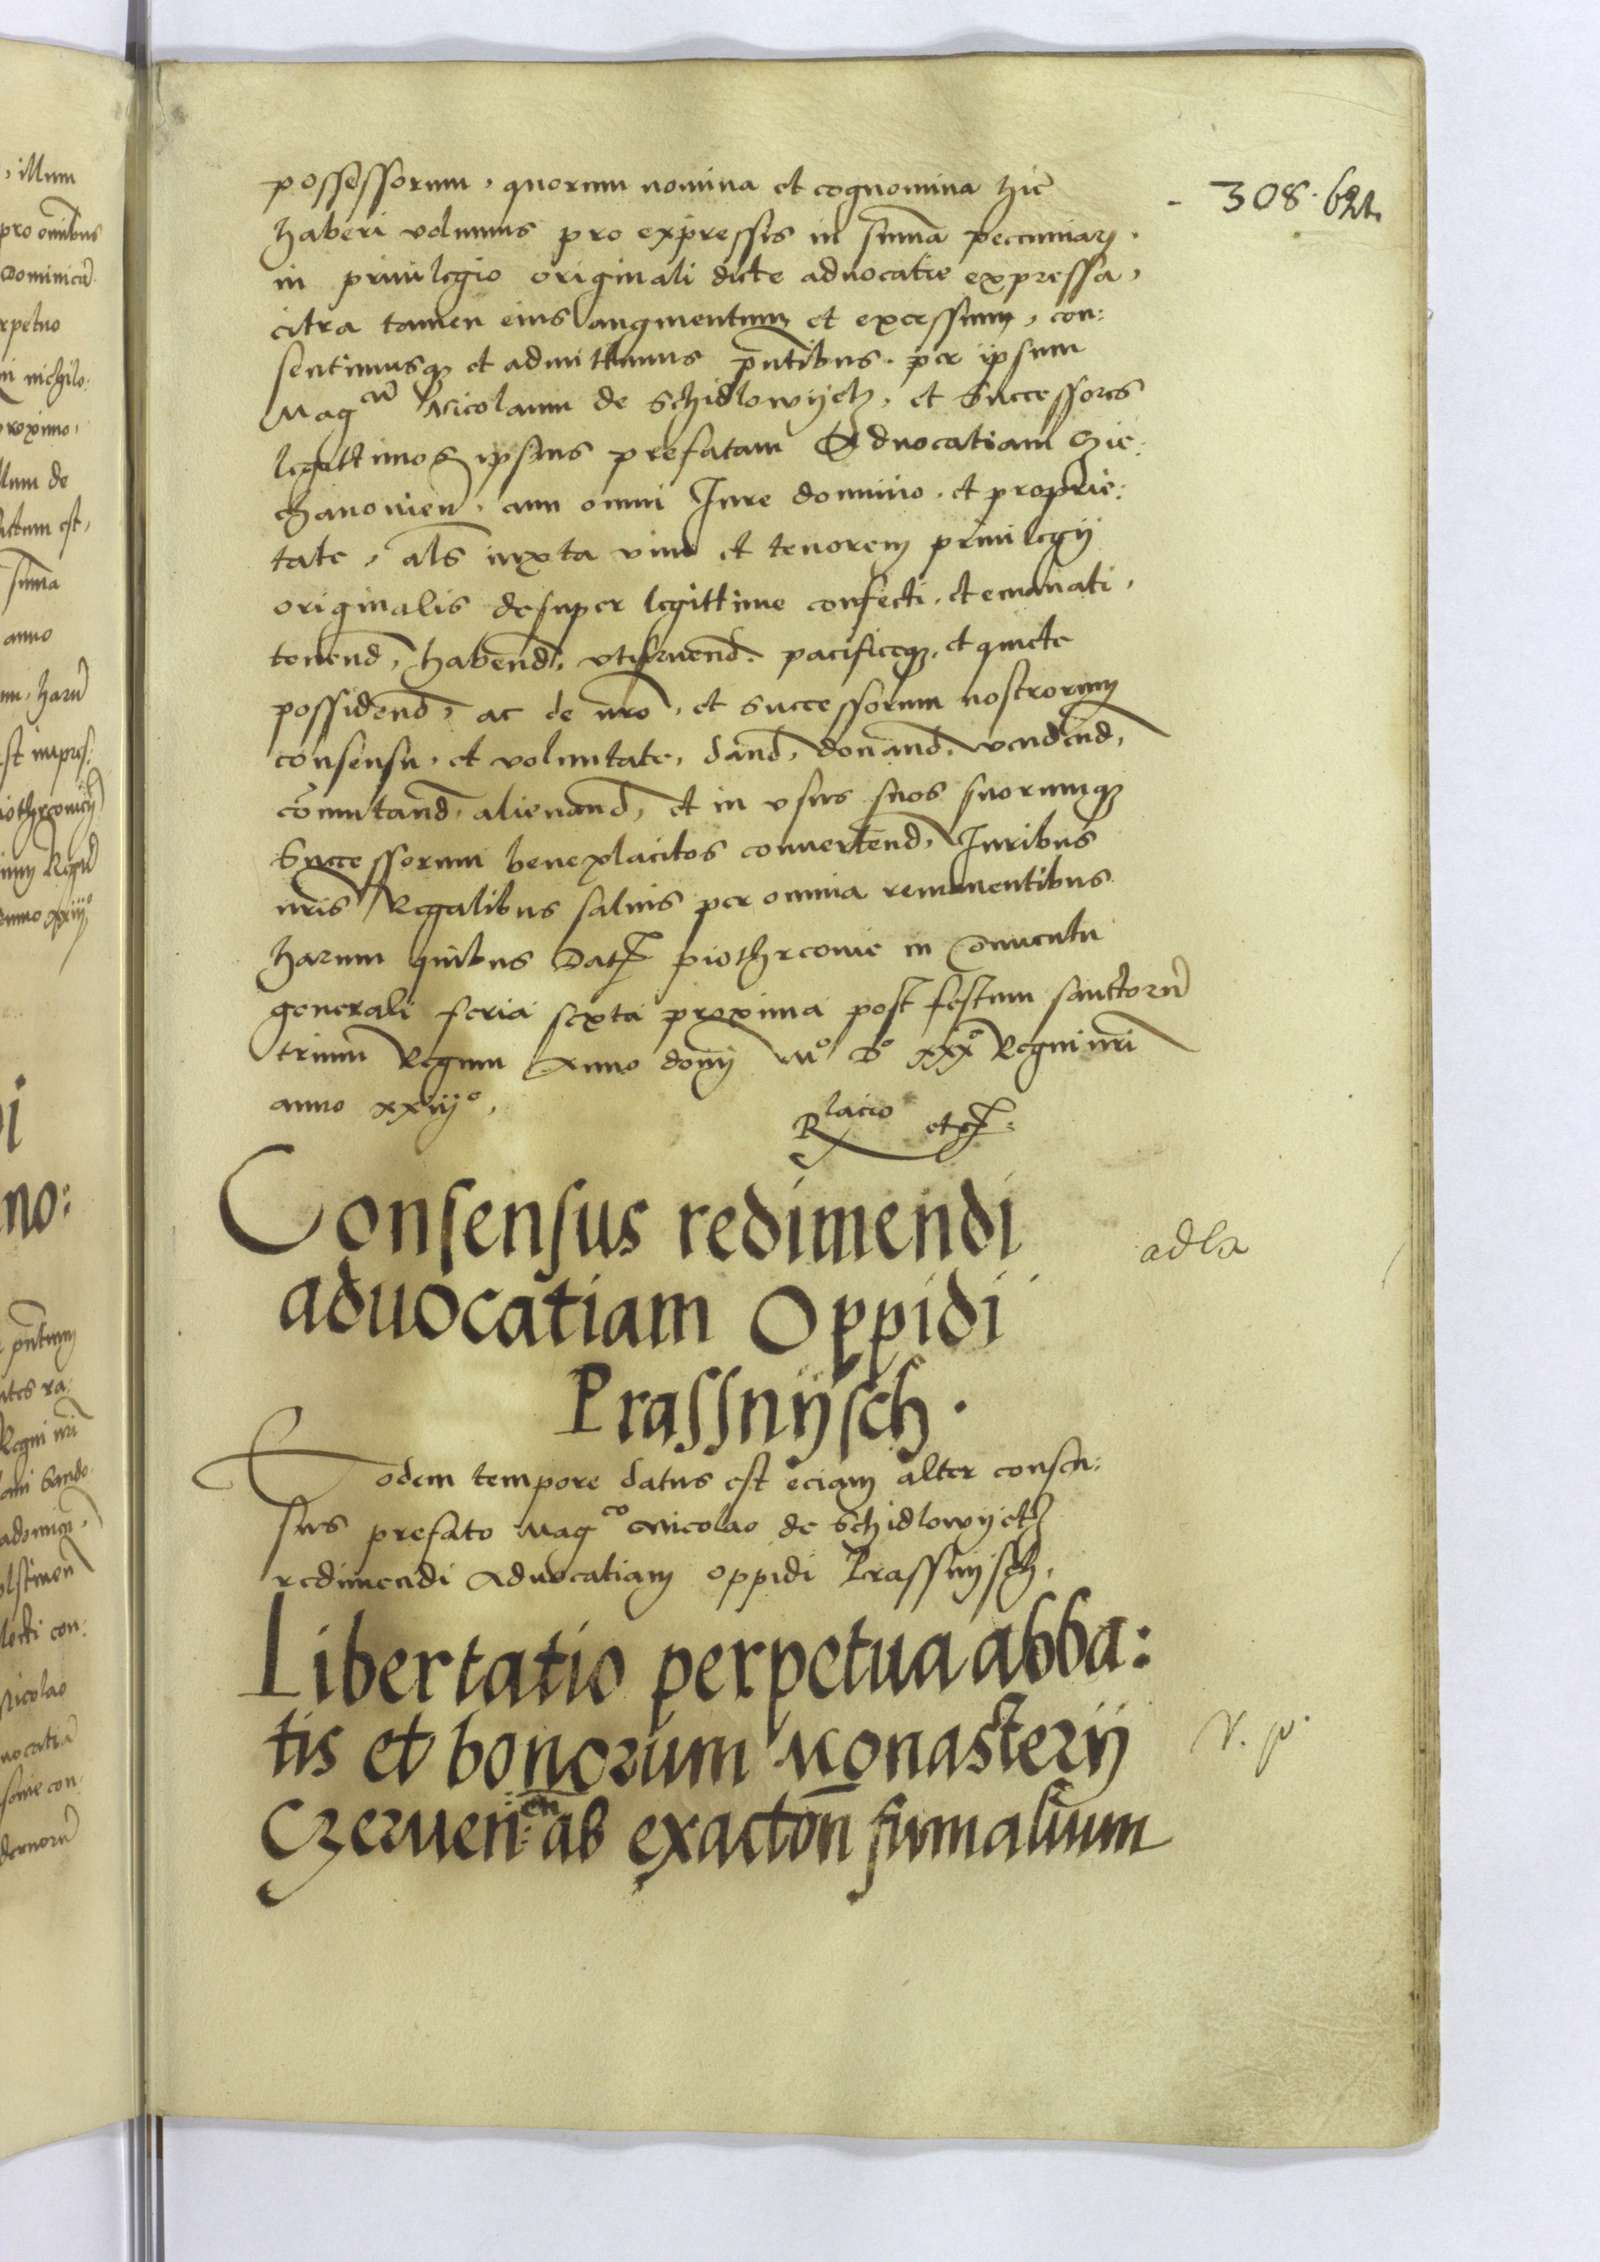 308. 621.
possessorum, quorum nomina et cognomina hic
haberi volumus pro expressis in sum̄a pecuniarꝫ.
in priuilegio originali dicte aduocatie expressa,
citra tamen eius augmentum et excessum, con:
sentimusqꝫ et admittimus pn̄tibus. per ipsum
Magcū Nicolaum de Schidlowÿetz, et Successores
legittimos ipsius prefatam Aduocatiam Cie:
chanouien̄. cum omni Iure dominio. et proprie:
tate, als̄ iuxta vim et tenorem priuilegÿ
originalis desuper legittime confecti. et emanati,
tenend̄, habend̄, vtifruend̄. pacificeqꝫ. et quiete
possidend̄, ac de nr̄o, et Successorum nostrorum
consensu. et voluntate, dand̄, donand̄. vendend̄,
com̄utand̄. alienand̄, et in vsus suos suorumqꝫ
Successorum beneplacitos conuertend̄, Iuribus
nr̄is Regalibus saluis per omnia remanentibus
harum quibus Datꝭ piothrcouie in Conuentu
generali feria sexta proxima post festum sanctorū
trium Regum Anno domj Mº Dº xxxº Regni nr̄i
anno xxiiijº.
Rlacio etcꝭ:
Consensus redimendi
aduocatiam Oppidi
Prassnÿsch.
adla
Eodem tempore datus est eciam alter consen:
sus prefato Magco Nicolao de Schidlowÿetz
redimendi Aduocatiam oppidi Prassnisch.
Libertatio perpetua abba:
tis et bonorum Monasterÿ
Czeruen̄en ab exacton̄ fumalium